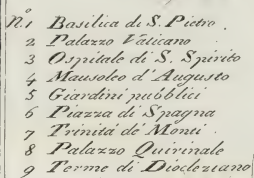 N.º 1 Basilica di S. Pietro.
2 Palazzo Vaticano
3 Ospitale di S. Spirito
4 Mausoleo d'Augusto
5 Giardini pubblici
6 Piazza di Spagna
7 Trinitá de' Monti
8 Palazzo Quirinale
9 Terme di Diocleziano